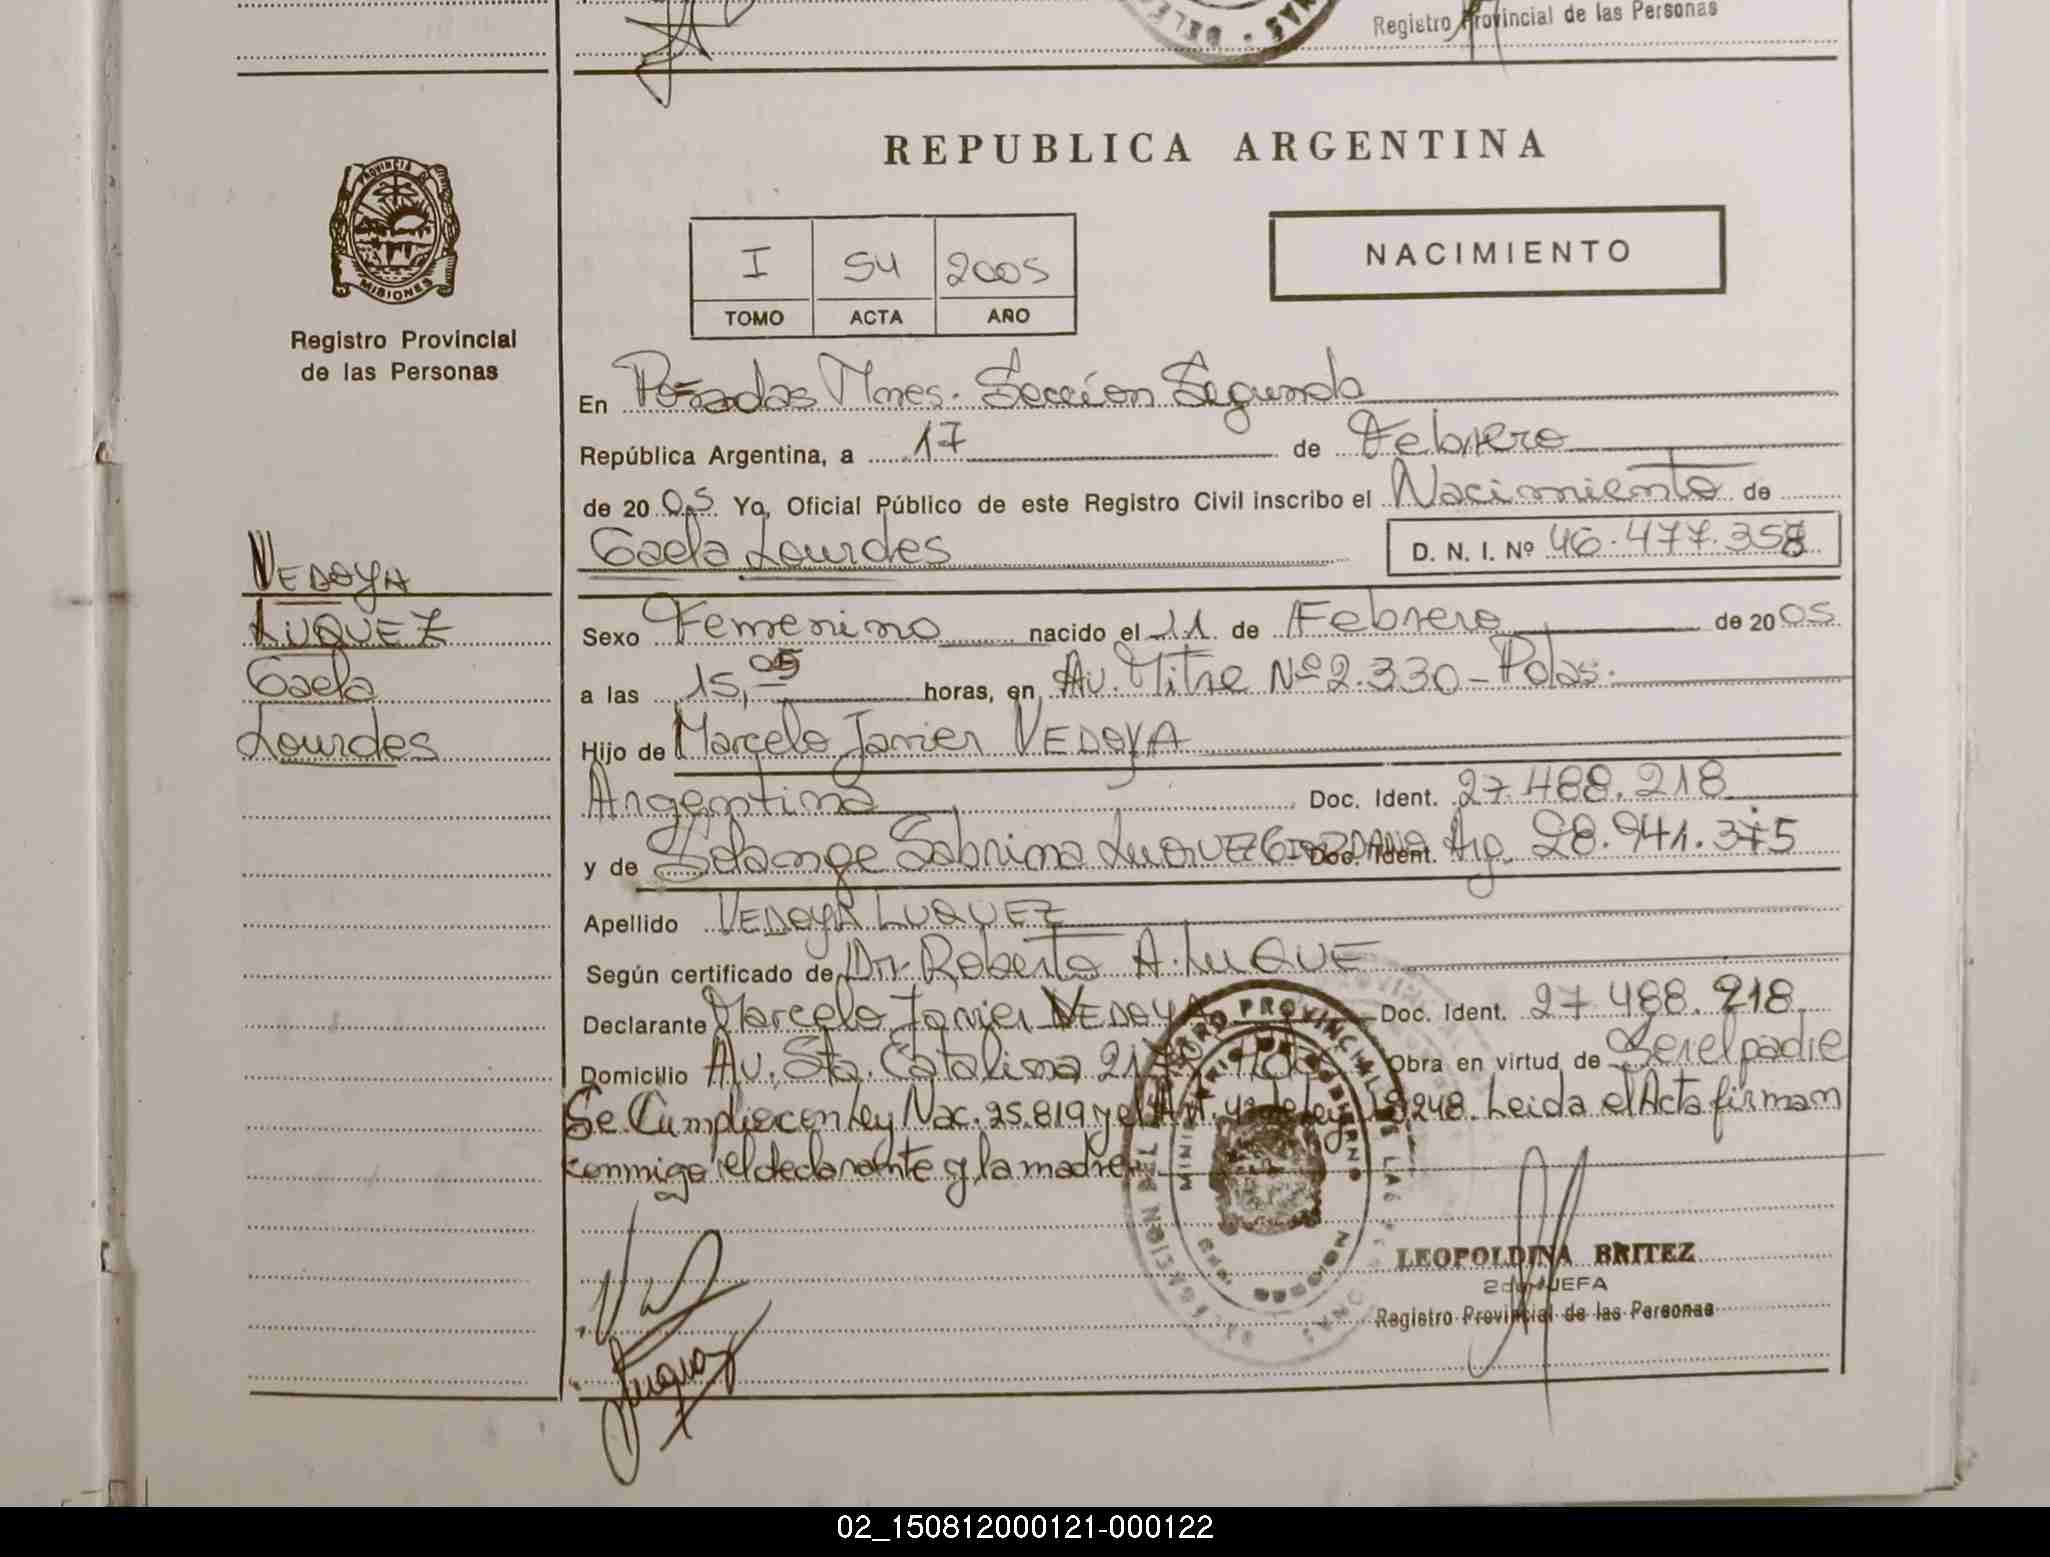 Registro Provincial de las Personas
REPUBLICA ARGENTINA
PROVINCIA DE
MISIONES
Registro Provincial
de las Personas
I 54 2005
TOMO ACTA AÑO
NACIMIENTO
En Posadas Mnes. Sección Segunda
República Argentina, a 17 de Febrero
de 2005 Yo, Oficial Público de este Registro Civil inscribo el Nacimiento de
Gaela Lourdes D. N. I. Nº 46.477.358
VEDOYA
LUQUEZ
Gaela
Lourdes
Sexo Femenino nacido el 11 de Febrero de 2005
a las 15,05 horas, en Av. Mitre Nº 2.330 - Pdas.
Hijo de Marcelo Javier VEDOYA
Argentina Doc. Ident. 27.488.218
y de Solange Sabrina LUQUEZ GIORDANO Doc. Ident. Arg. 28.941.375
Apellido VEDOYA LUQUEZ
Según certificado de Dr. Roberto A. LUQUE
Declarante Marcelo Javier VEDOYA Doc. Ident. 27.488.218
Domicilio Av. Sta. Catalina Obra en virtud de Ser el padre
Se Cumplio con Ley Nac. 25.819 y el Art. 4º de ley 18.248. Leida el Acta firman
conmigo el declarante y la madre.
REGISTRO PROVINCIAL DE LAS
MINISTERIO DE GOBIERNO
LEOPOLDINA BRITEZ
2da. JEFA
Registro Provincial de las Personas
Luquez
02_150812000121-000122